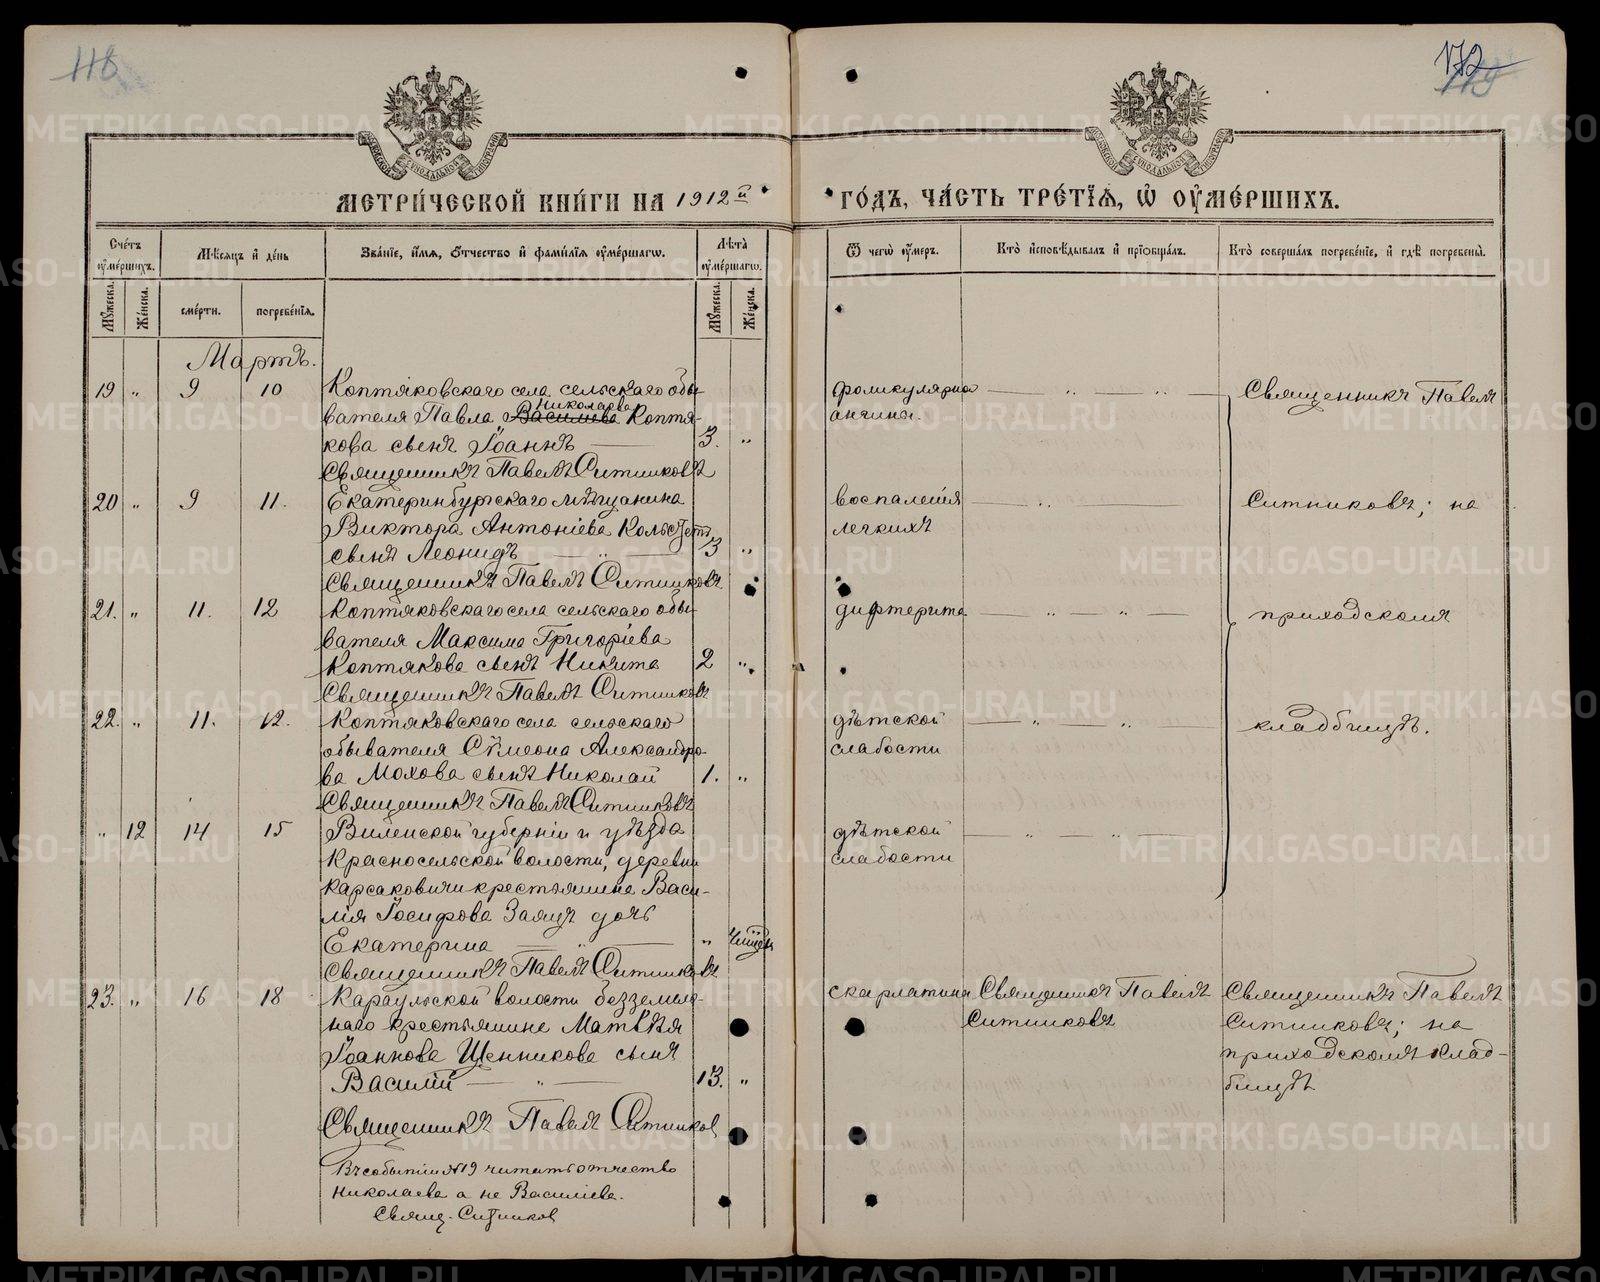 118
172
119
МЕТРИ́ЧЕСКОЙ КНИ́ГИ НА 1912й
ГО́ДЪ, ЧА́СТЬ ТРЕ́ТІѦ, Ѡ ОУМЕ́РШИХЪ.
Сче́тъ оумéршихъ.
Мѣ́сяцъ и де́нь
Зва́нїе, и́мѧ, ѻ́тчество и фами́лїѧ оумéршагѡ.
Лѣ́та оумéршагѡ.
Ѿ чегѡ̀ оу́меръ.
Кто̀ и҆сповѣ́дывалъ и҆ прїѡбща́лъ.
Кто̀ соверша́лъ погребе́нїе, и҆ гдѣ̀ погребены̀.
Му́жеска.
Же́нска.
сме́рти.
погребе́нїѧ.
Му́жеска.
Же́нска.
Мартъ.
19 „ 9 10 Коптяковскаго села сельскаго обы-
вателя Павла Василiева Николаева Коптя-
кова сынъ Іоаннъ 3. „
Священникъ Павелъ Ситниковъ
фоликулярна
ангина.
Священникъ Павелъ
20 „ 9 11. Екатеринбургскаго мѣщанина
Виктора Антоніева
сынъ Леонидъ 3 „
Священникъ Павелъ Ситниковъ
воспаления
легкихъ
Ситниковъ; на
21. „ 11. 12 Коптяковскаго села сельскаго обы-
вателя Максима Григоріева
Коптякова сынъ Никита 2 „
Священникъ Павелъ Ситниковъ
дифтерита
приходскомъ
22. „ 11. 12. Коптяковскаго села сельскаго
обывателя Сѵмеона Александро-
ва Мохова сынъ Николай 1. „
Священникъ Павелъ Ситниковъ
дѣтской
слабости
кладбищѣ.
„ 12 14 15 Виленской губерніи и уѣзда
Красносельской волости, деревни
Карсаковичи крестьянина Васи-
лія Іосифова Заяцъ дочь
Екатерина „
Священникъ Павелъ Ситниковъ
дѣтской
слабости
23. „ 16 18 Караульской волости безземель-
наго крестьянина Матвѣя
Іоаннова Щенникова сынъ
Василій 13. „
Священникъ Павелъ Ситников
скарлатина
Священникъ Павелъ
Ситниковъ
Священникъ Павелъ
Ситниковъ; на
приходскомъ клад-
бищѣ
Въ событіи №19 читать отчество
Николаева а не Василіева.
Свящ. Ситников
METRIKI.GASO-URAL.RU